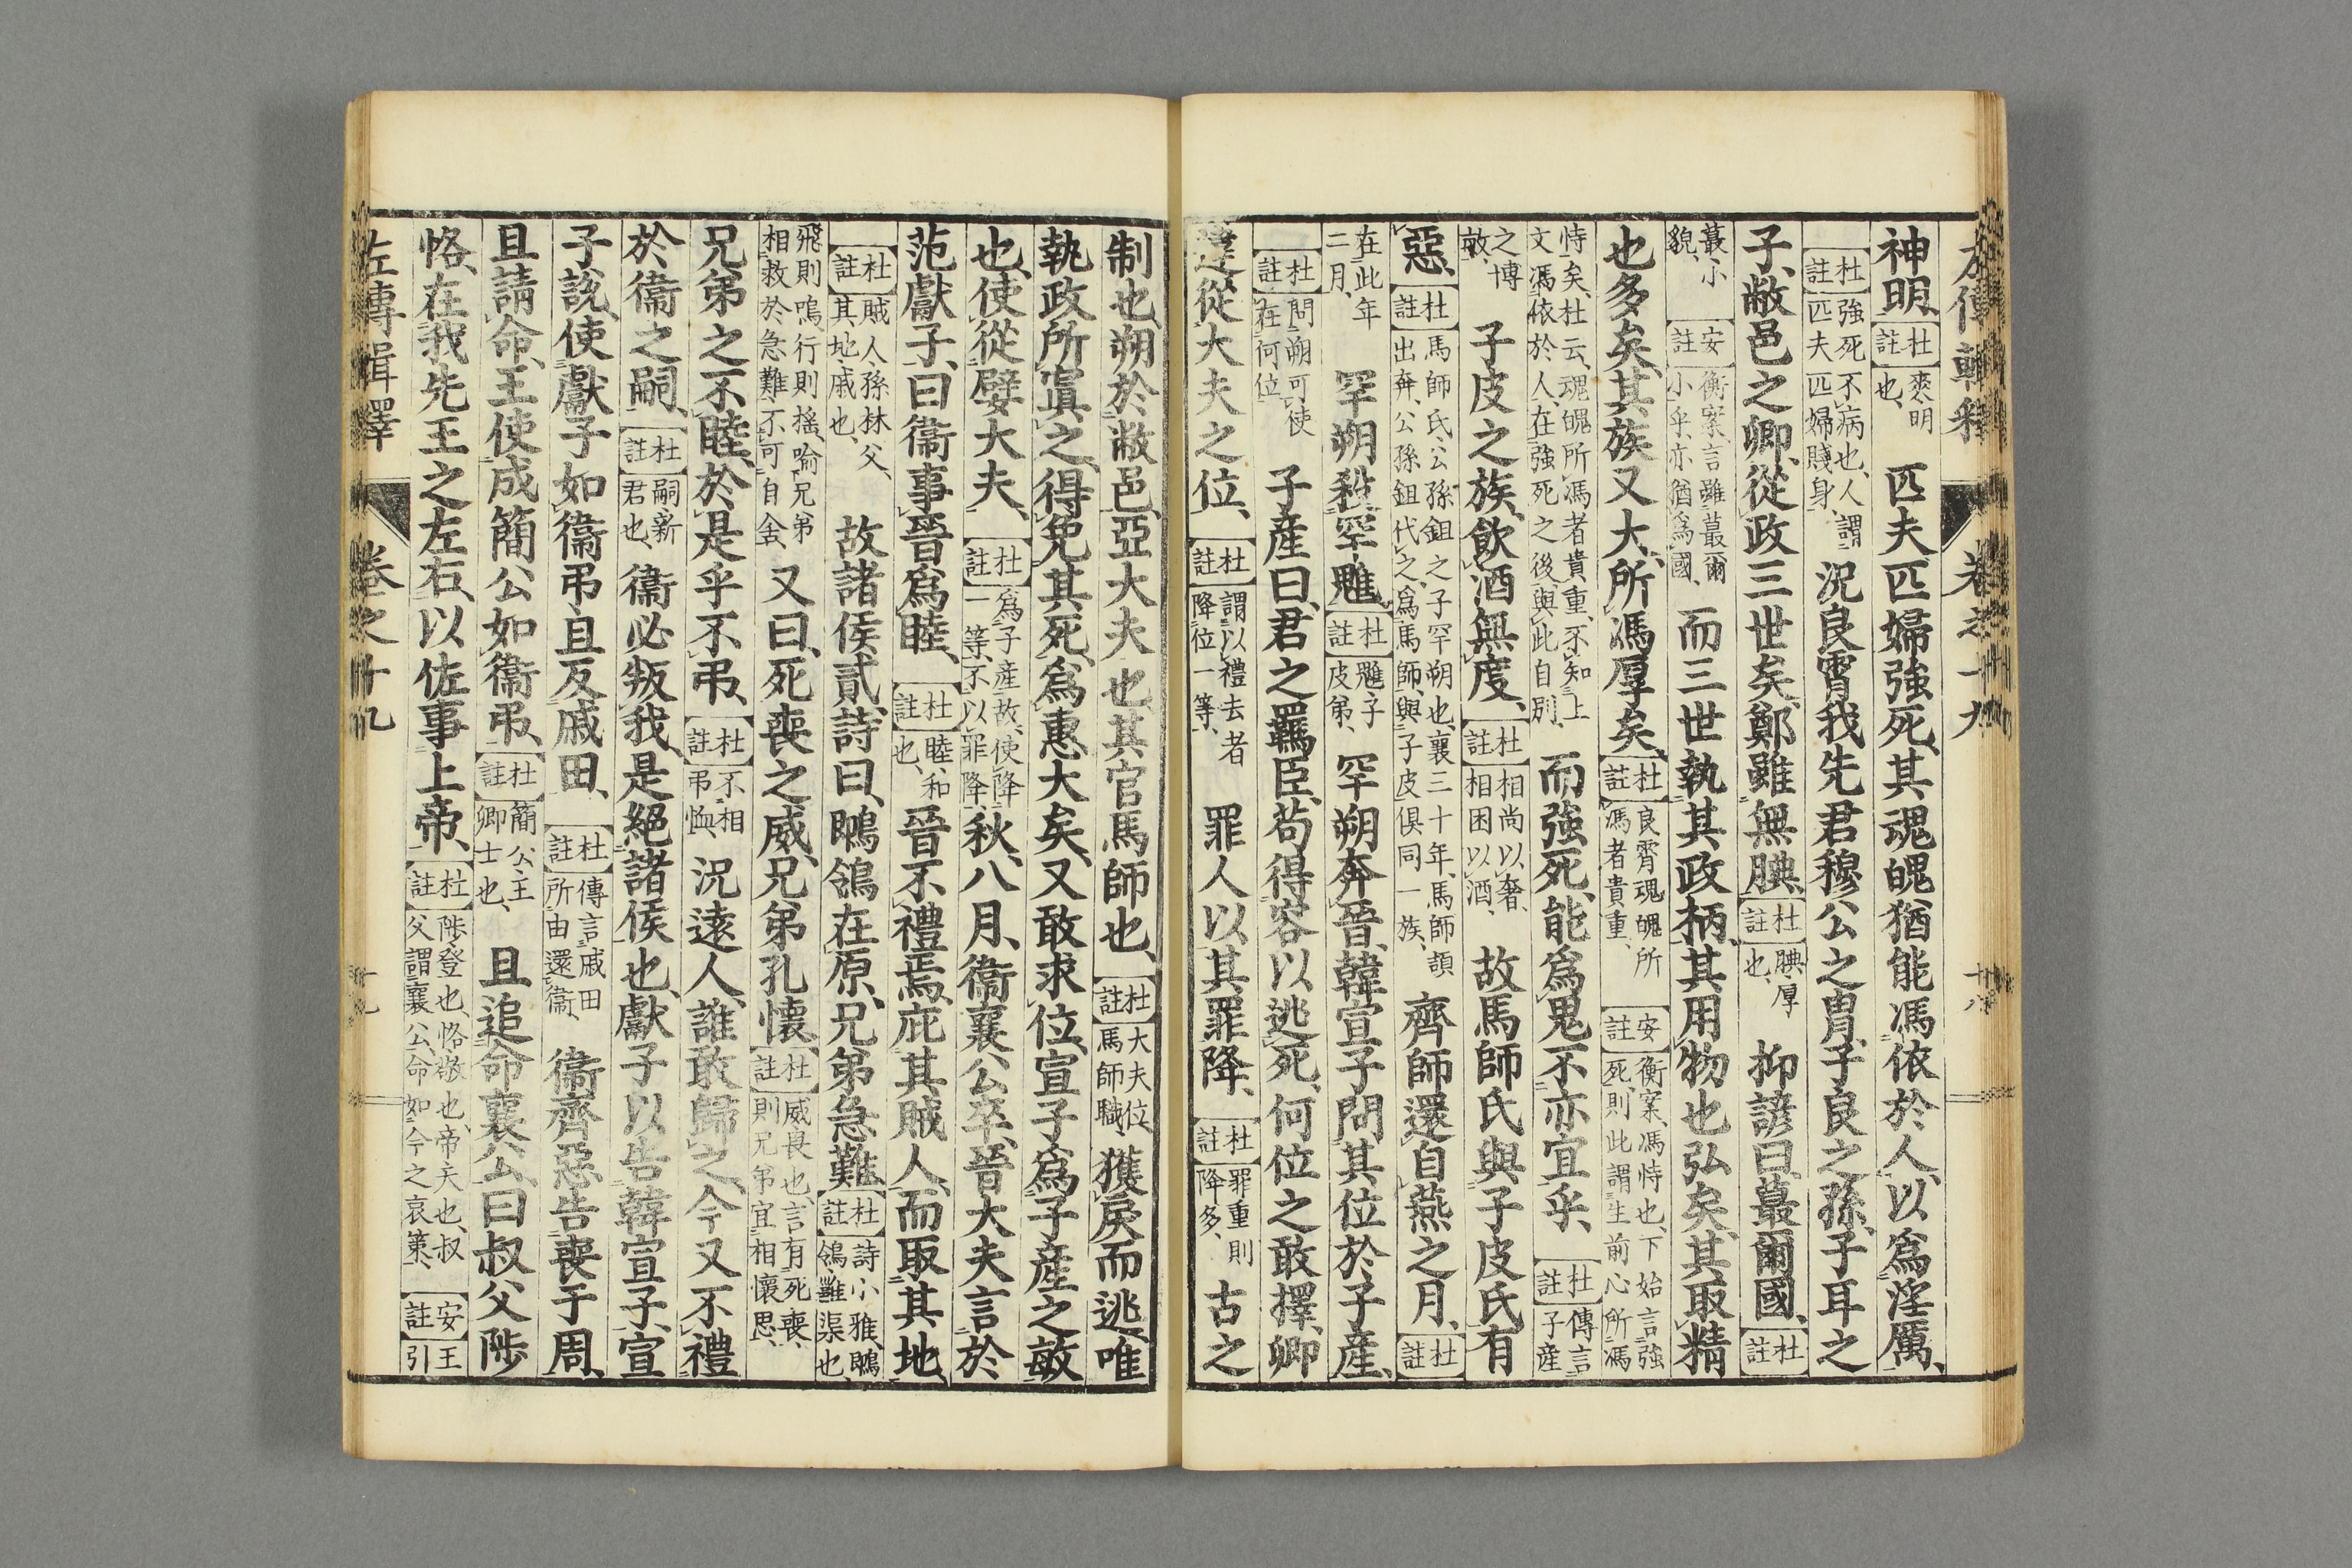 左傳輯釋 卷之十九 十八
神明、杜註爽明也、匹夫匹婦強死、其魂魄猶能馮依於人、以爲淫厲、
杜註強死不病也、人謂匹夫匹婦賤身、況良霄我先君穆公之冑、子良之孫、子耳之
子、敝邑之卿、從政三世矣、鄭雖無腆、杜註腆厚也、抑諺曰、蕞爾國、杜註
蕞小貌、安註衡案、言雖蕞爾小乎、亦猶爲國、而三世執其政柄、其用物也弘矣、其取精
也多矣、其族又大、所馮厚矣、杜註良霄魂魄所馮者貴重、安註衡案、馮恃也、下始言強死、則此謂生前心所馮
恃矣、杜云、魂魄所馮者貴重、不知上文馮依於人、在強死之後、與此自別、而強死、能爲鬼、不亦宜乎、杜註傳言子產
之博敏、子皮之族、飲酒無度、杜註相尚以奢、相困以酒、故馬師氏與子皮氏有
惡、杜註馬師氏、公孫鉏之子罕朔也、襄三十年、馬師頡出奔、公孫鉏代之、爲馬師、與子皮俱同一族、齊師還自燕之月、杜註
在此年二月、罕朔殺罕魋、杜註魋子皮弟、罕朔奔晉、韓宣子問其位於子產、
杜註問朔可使在何位、子產曰、君之羈臣、苟得容以逃死、何位之敢擇、卿
違從大夫之位、杜註謂以禮去者降位一等、罪人以其罪降、杜註罪重則降多、古之
制也、朔於敝邑、亞大夫也、其官馬師也、杜註大夫位、馬師職、獲戾而逃、唯
執政所寘之、得免其死、爲惠大矣、又敢求位、宣子爲子產之敏
也、使從嬖大夫、杜註爲子產故、使降一等、不以罪降、秋、八月、衞襄公卒、晉大夫言於
范獻子、曰、衞事晉爲睦、杜註睦、和也、晉不禮焉、庇其賊人、而取其地、
杜註賊人孫林父、其地、戚也、故諸侯貳、詩曰、鵰鴒在原、兄弟急難、杜註詩小雅、鵰鴒、雝渠也、
飛則鳴、行則搖、喻兄弟相救於急難、不可自舍、又曰、死喪之威、兄弟孔懷、杜註威畏也、言有死喪、則兄弟宜相懷思、
兄弟之不睦、於是乎不弔、杜註不相弔恤、況遠人、誰敢歸之、今又不禮
於衞之嗣、杜註嗣新君也、衞必叛我、是絕諸侯也、獻子以告韓宣子、宣
子說、使獻子如衞弔、且反戚田、杜註傳言戚田所由還衞、衞齊惡告喪于周、
且請命、王使成簡公如衞弔、杜註簡公、王卿士也、且追命襄公曰、叔父陟
恪、在我先王之左右、以佐事上帝、杜註陟、登也、恪、敬也、帝、天也、叔父謂襄公、命如今之哀策、安註王引
左傳輯釋 卷之十九 十九